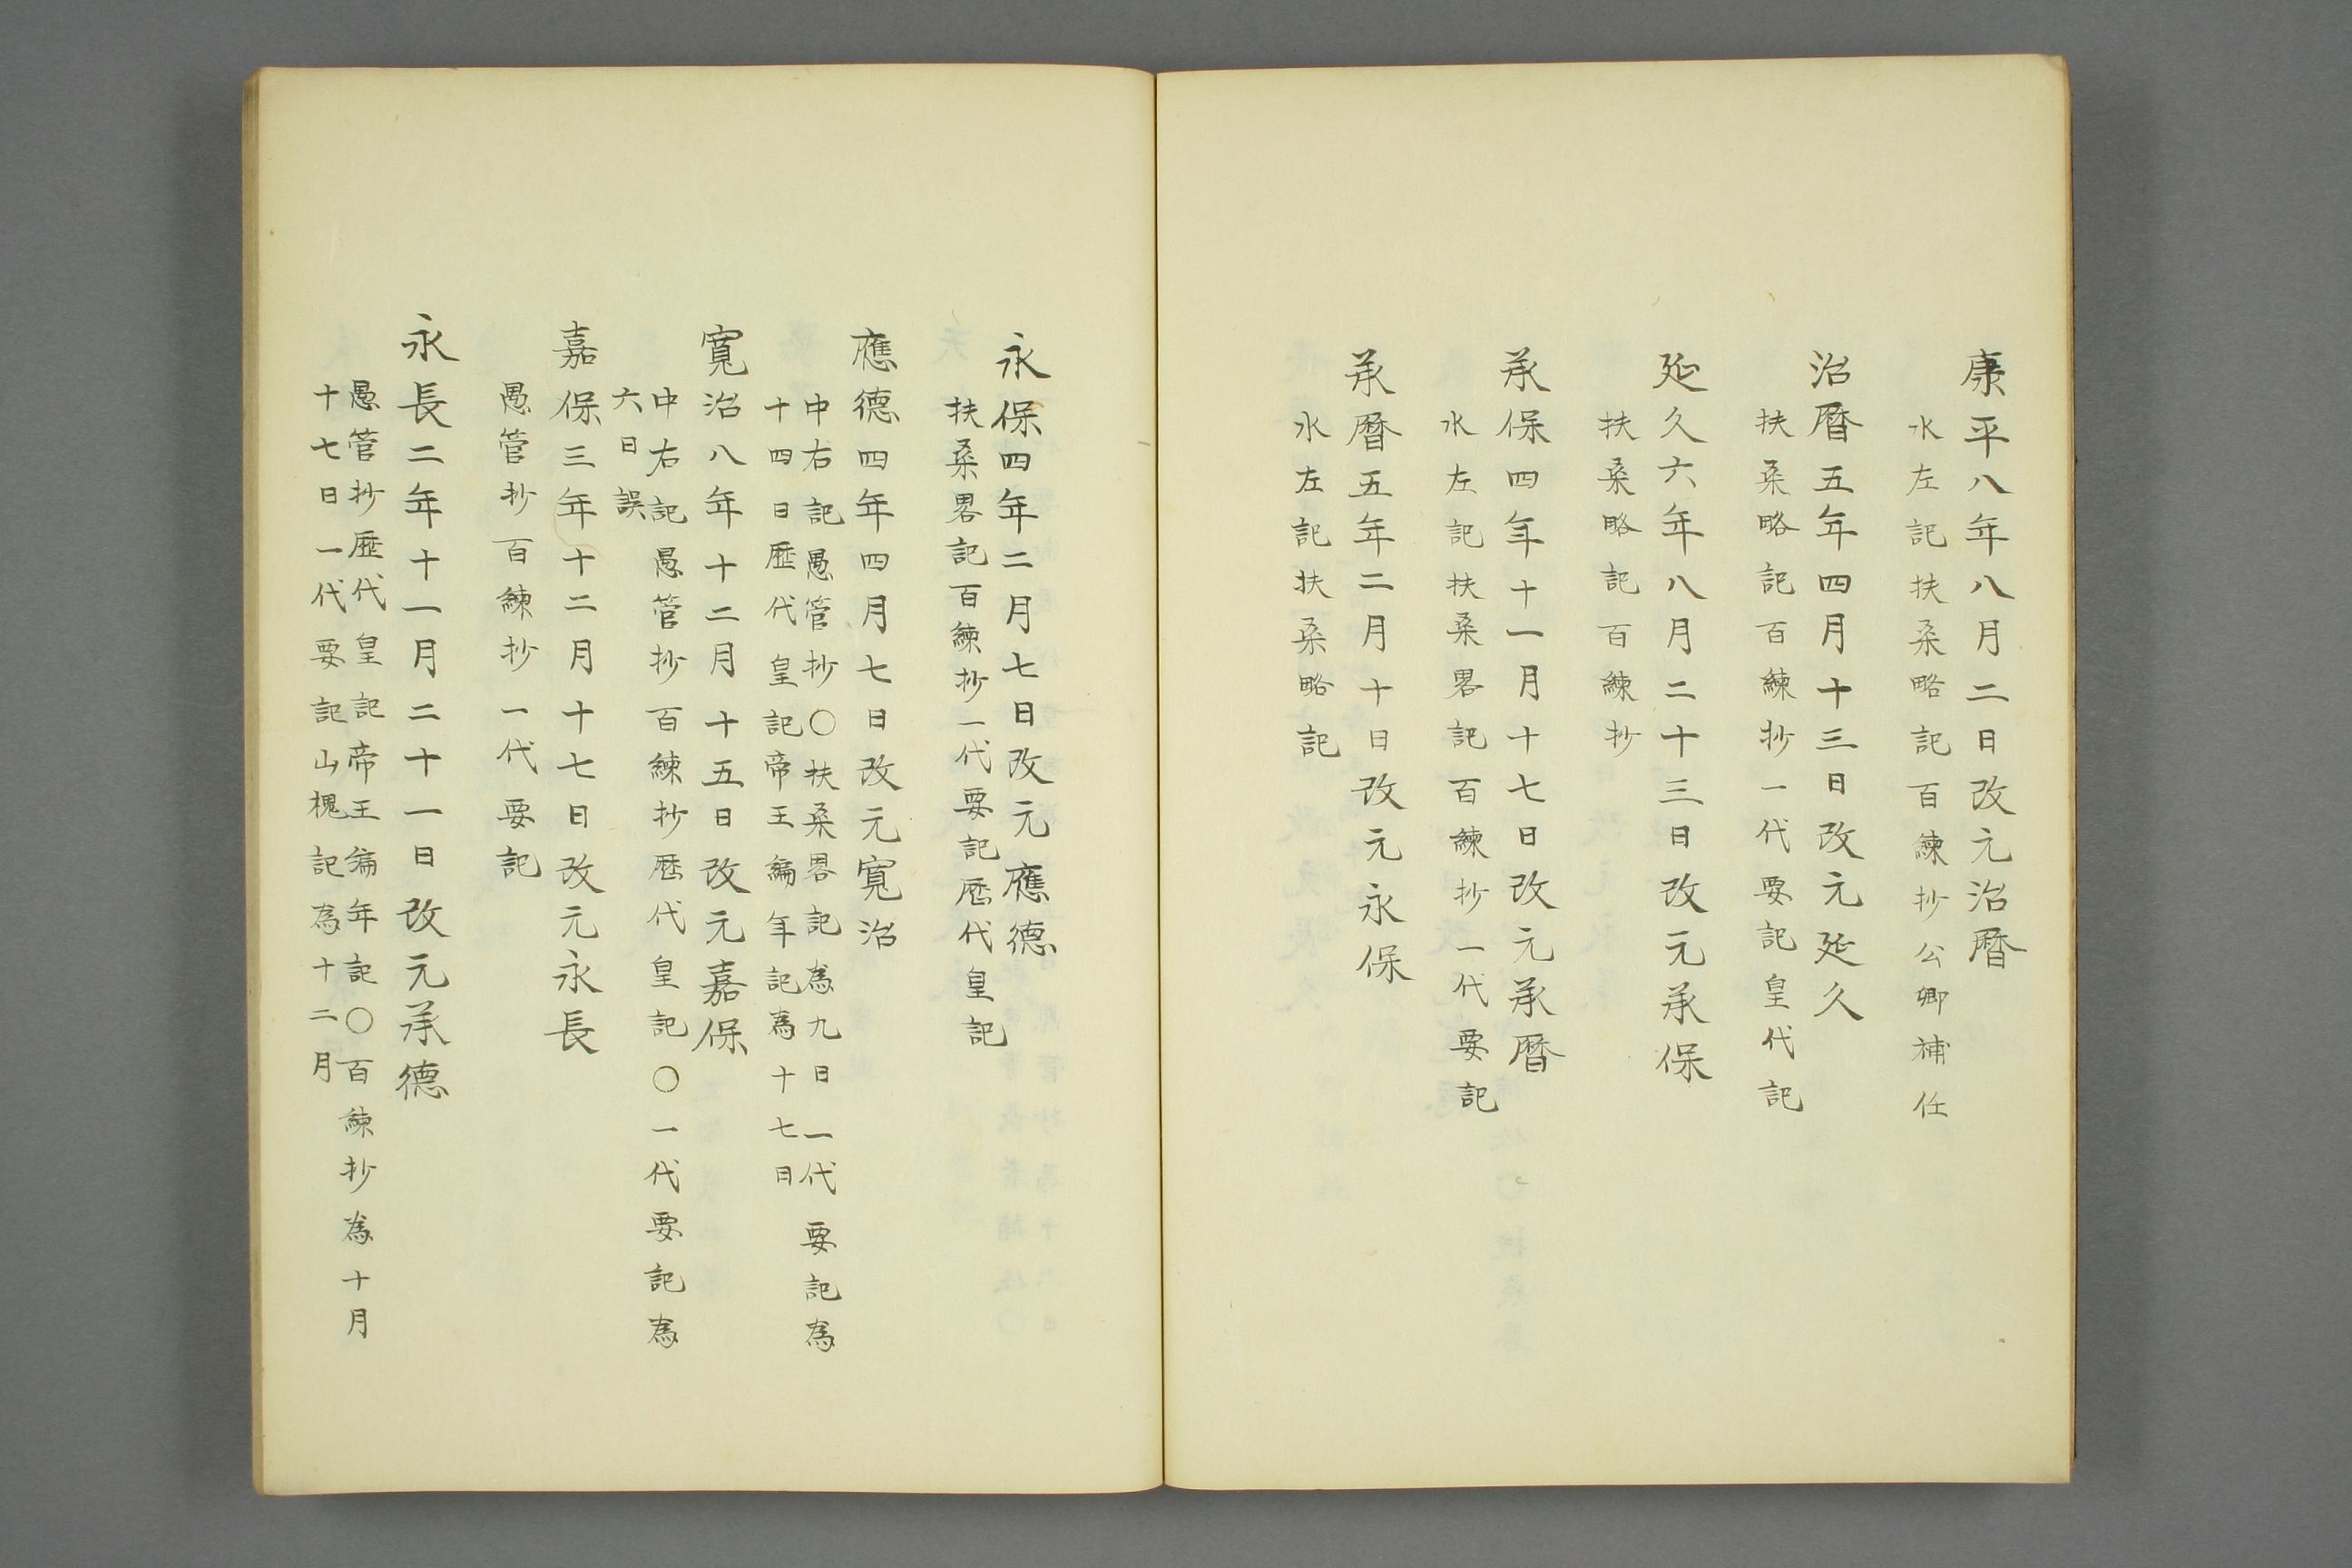 康平八年八月二日改元治暦
水左記扶桑略記百練抄公卿補任
治暦五年四月十三日改元延久
扶桑略記百練抄一代要記皇代記
延久六年八月二十三日改元承保
扶桑略記百練抄
承保四年十一月十七日改元承暦
水左記扶桑畧記百練抄一代要記
承暦五年二月十日改元永保
水左記扶桑略記
永保四年二月七日改元應德
扶桑畧記百練抄一代要記歴代皇記
應德四年四月七日改元寛治
中右記愚管抄〇扶桑畧記為九日一代要記為
十四日歷代皇記帝王編年記為十七日
寛治八年十二月十五日改元嘉保
中右記愚管抄百練抄歴代皇記〇一代要記為
六日誤
嘉保三年十二月十七日改元永長
愚管抄百練抄一代要記
永長二年十一月二十一日改元承德
愚管抄歷代皇記帝王編年記〇百練抄為十月
十七日一代要記山槐記為十二月